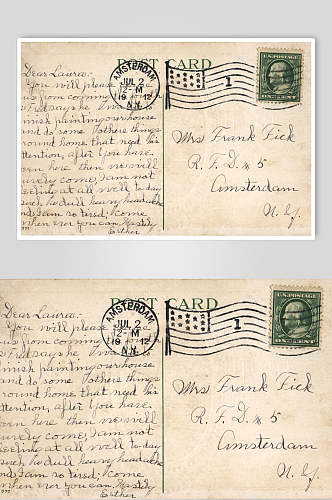 POST CARD
AMSTERDAM
JUL 2
12-M
19 12
N.Y.
1
U.S. POSTAGE
Dear Laura:
You will please
us from coming
Fred says he
finish painting our house
and do some others things
round home that need his
attention, after you have
been here then we will
surely come, I am not
feeling at all well to-day
such, he dull heavy headache
and I am so tired; Come
when ever you can, Hastily
Esther
Mrs Frank Fick
R. F. D. # 5
Amsterdam
N. Y.
POST CARD
AMSTERDAM
JUL 2
12-M
19 12
N.Y.
1
U.S. POSTAGE
Dear Laura:
You will please
us from coming
Fred says he
finish painting our house
and do some others things
round home that need his
attention, after you have
been here then we will
surely come, I am not
feeling at all well to day
such, he dull heavy headache
and I am so tired; Come
when ever you can, Hastily
Esther
Mrs Frank Fick
R. F. D. # 5
Amsterdam
N. Y.